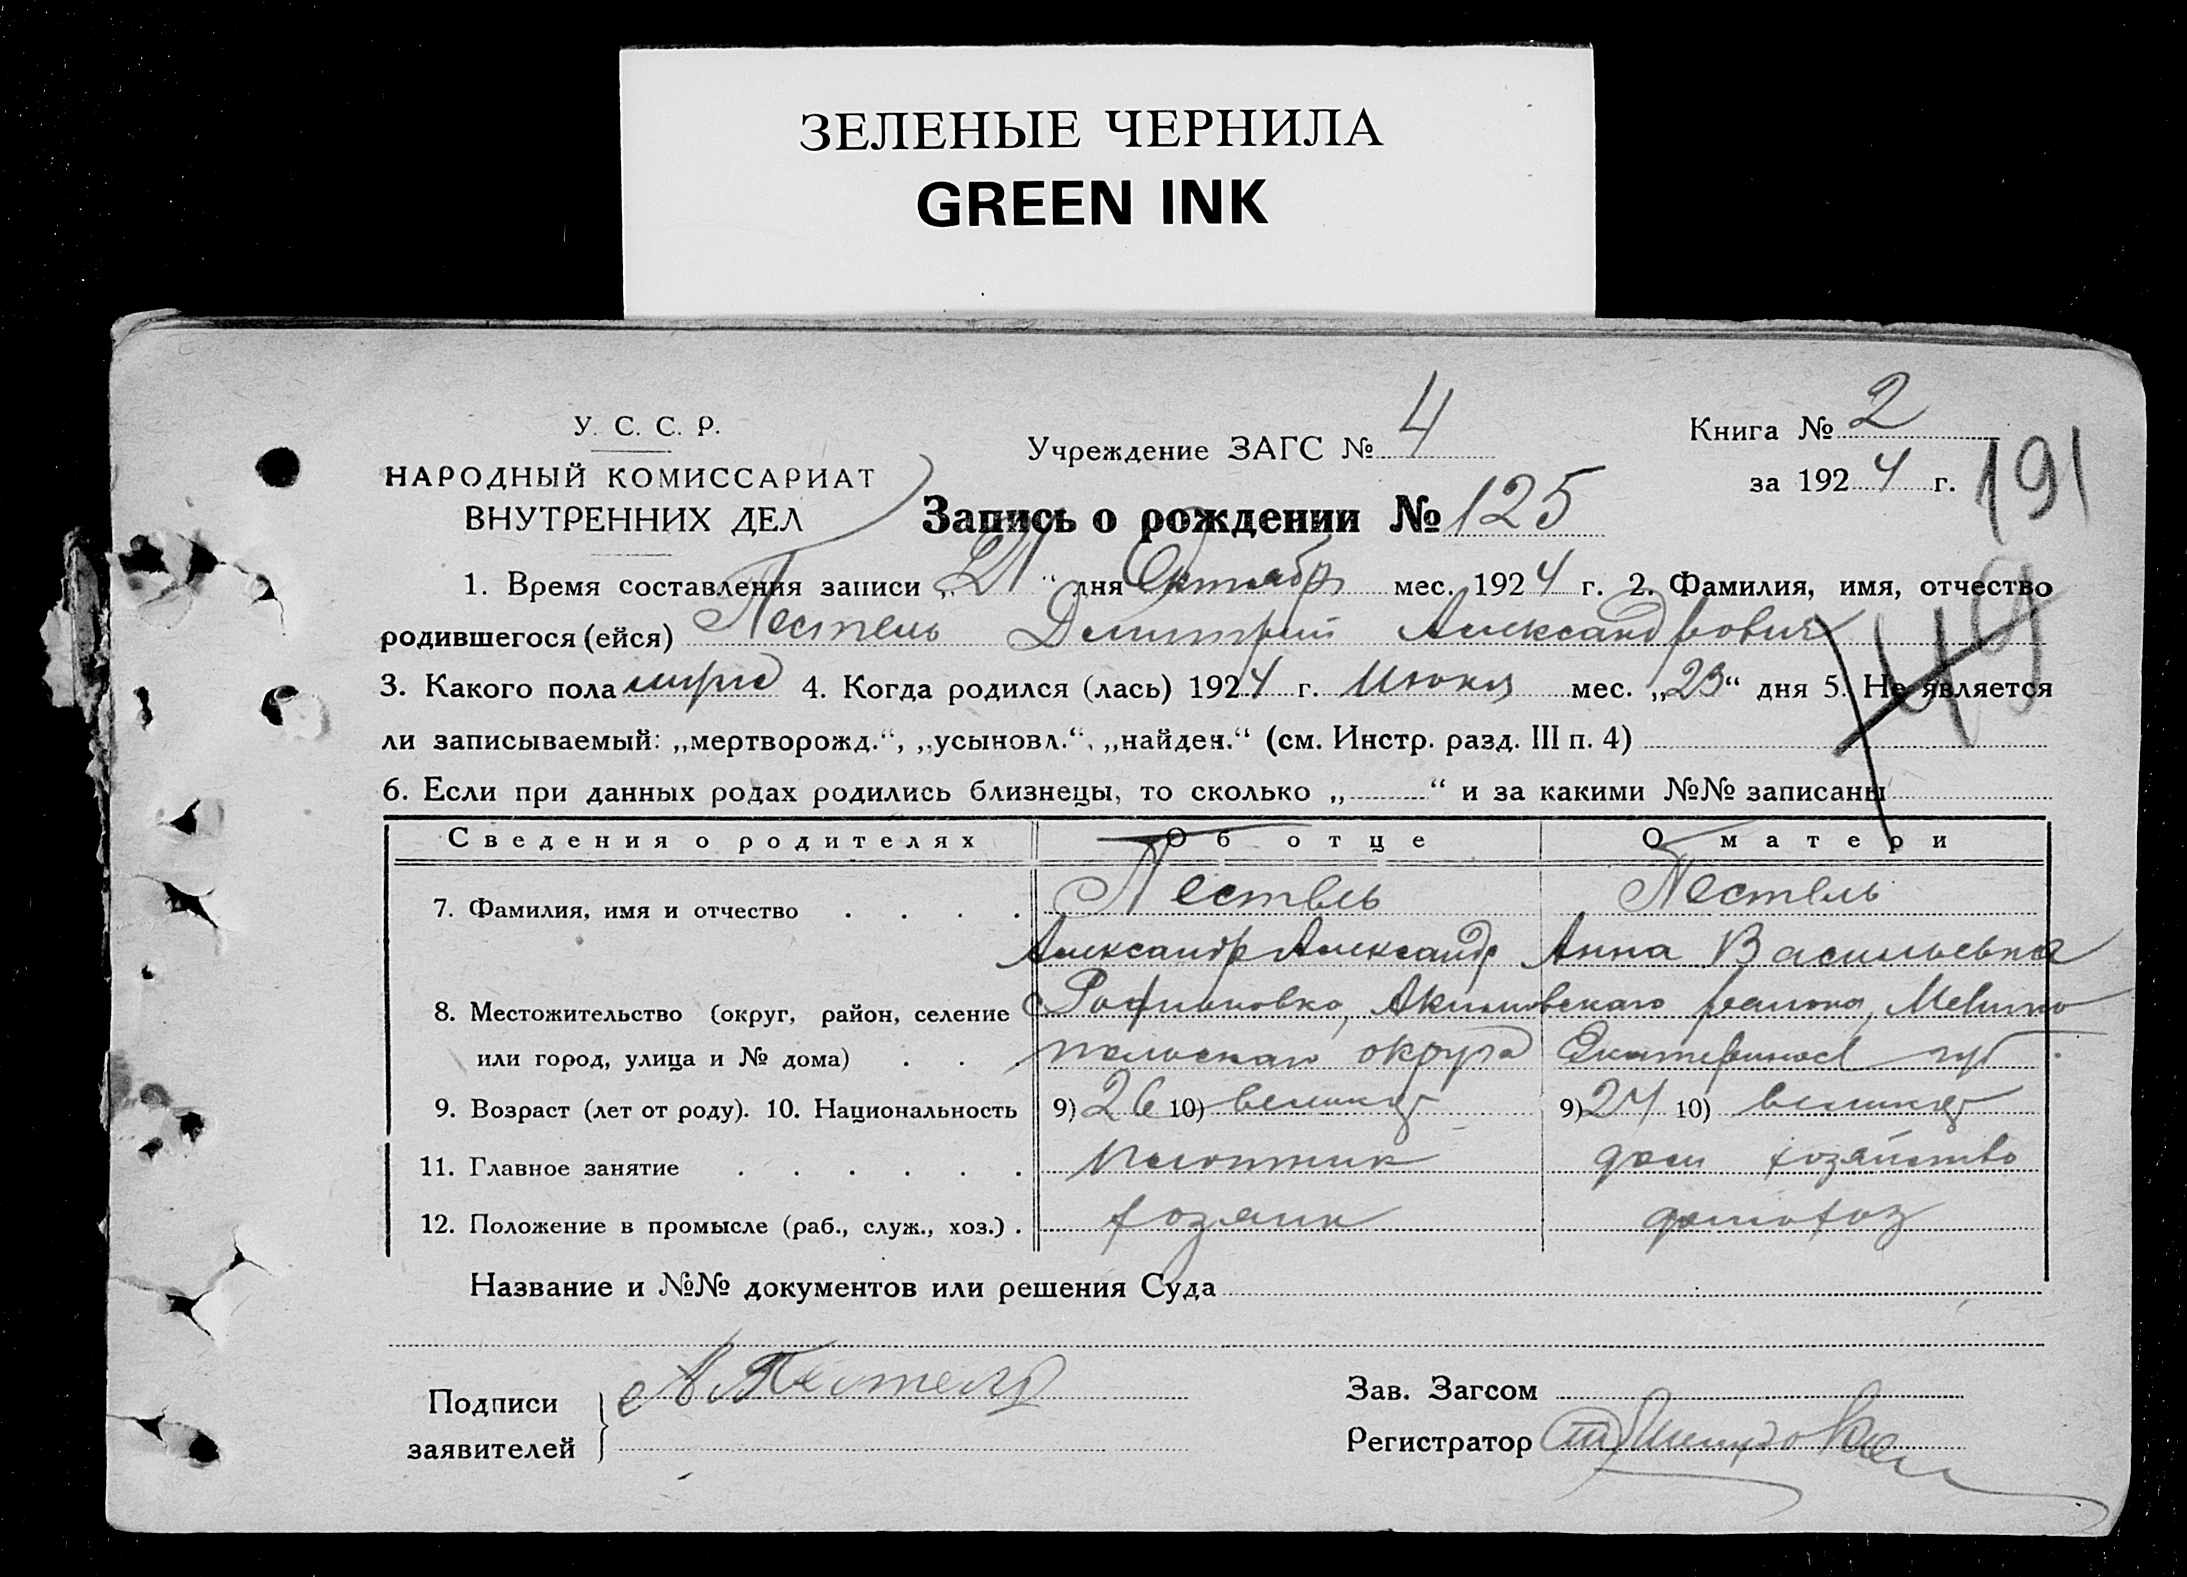 ЗЕЛЕНЫЕ ЧЕРНИЛА
GREEN INK
У. С. С. Р.
НАРОДНЫЙ КОМИССАРИАТ
ВНУТРЕННИХ ДЕЛ
Учреждение ЗАГС № 4
Книга № 2
за 1924 г.
191
Запись о рождении № 125
1. Время составления записи „21“ дня Октябр мес. 1924 г. 2. Фамилия, имя, отчество
родившегося (ейся) Пестель Дмитрий Александрович
149
3. Какого пола 4. Когда родился (лась) 1924 г. мес. „23“ дня 5. Не является
ли записываемый: „мертворожд.“, „усыновл.“, „найден.“ (см. Инстр. разд. III п. 4)
6. Если при данных родах родились близнецы, то сколько „ “ и за какими №№ записаны
Сведения о родителях Об отце О матери
7. Фамилия, имя и отчество Пестель Пестель
Александр Александр Анна Васильевна
8. Местожительство (округ, район, селение Акимовского района, Мелито
или город, улица и № дома) польского округа Екатеринос губ.
9. Возраст (лет от роду). 10. Национальность 9) 26 10) 9) 24 10)
11. Главное занятие плотник дом хозяйство
12. Положение в промысле (раб., служ., хоз.) хозяин домохоз
Название и №№ документов или решения Суда
Подписи
заявителей
А Пестель
Зав. Загсом
Регистратор